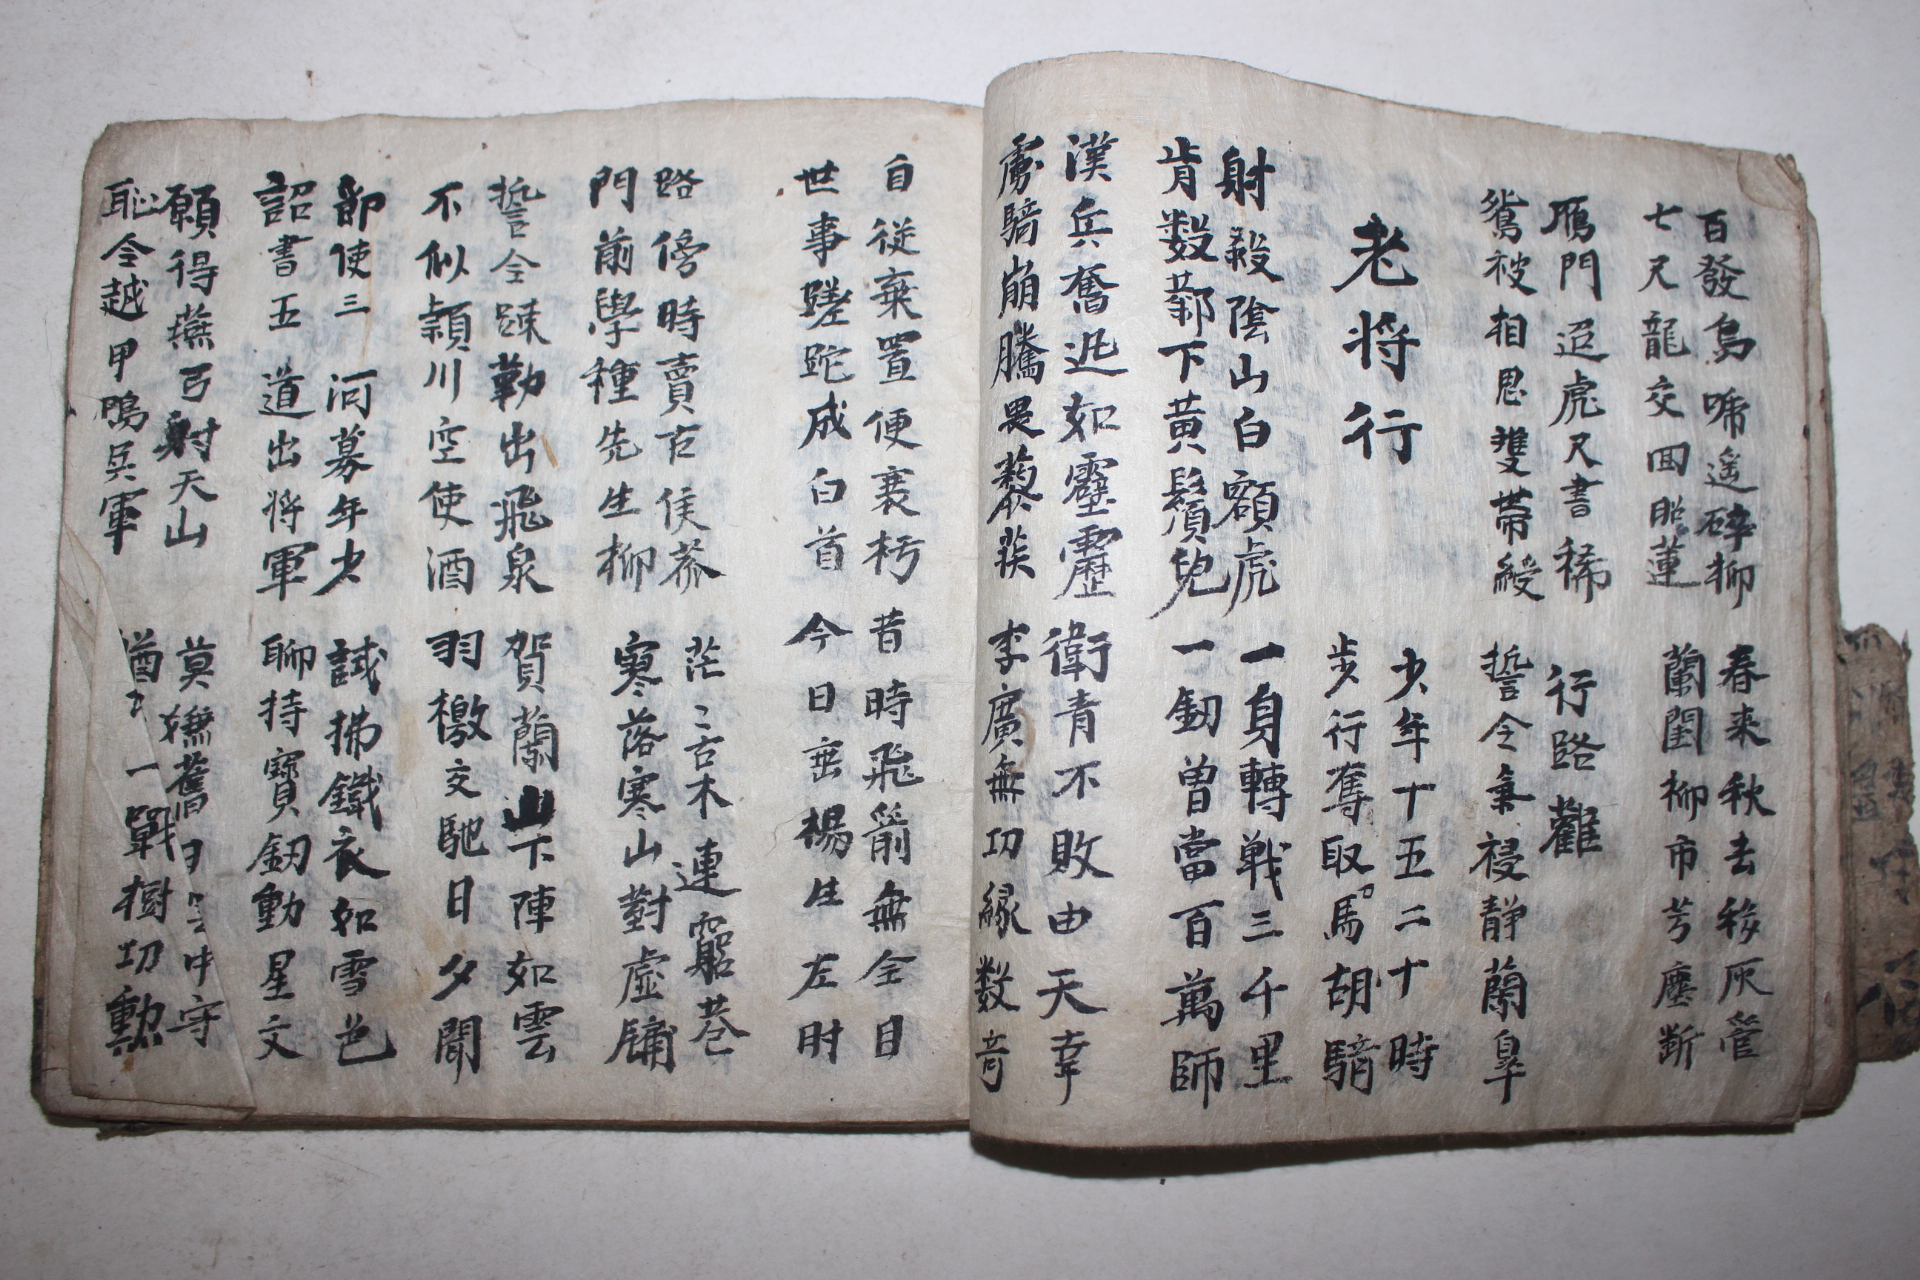 百發烏啼遥碎柳 春来秋去移灰管
七尺龍交回照蓮 蘭閨柳市芳塵断
雁門迢遰尺書稀 行路難
鴛被相思雙帶緩 誓令氣祲静蘭皐
老将行
少年十五二十時
步行奪取馬胡騎
射殺陰山白額虎 一身轉戦三千里
肯数鄴下黄鬚兒 一釼曾當百萬師
漢兵奮迅如霹靂 衛青不敗由天幸
虜騎崩騰畏蒺 李廣無功縁数竒
自従棄置便衰朽 昔時飛箭無全目
世事蹉跎成白首 今日垂楊生左肘
路傍時賣古侯 茫〻古木連窮巷
門前學種先生柳 寒落寒山對虛牖
誓令踈勒出飛泉 賀蘭山下陣如雲
不似潁川空使酒 羽檄交馳日夕聞
節使三河募年少 試拂鐵衣如雪色
詔書五道出将軍 聊持寶釼動星文
願得燕弓射天山 莫嫌舊日雲中守
恥令越甲鳴兵軍 猶一戰樹功勳